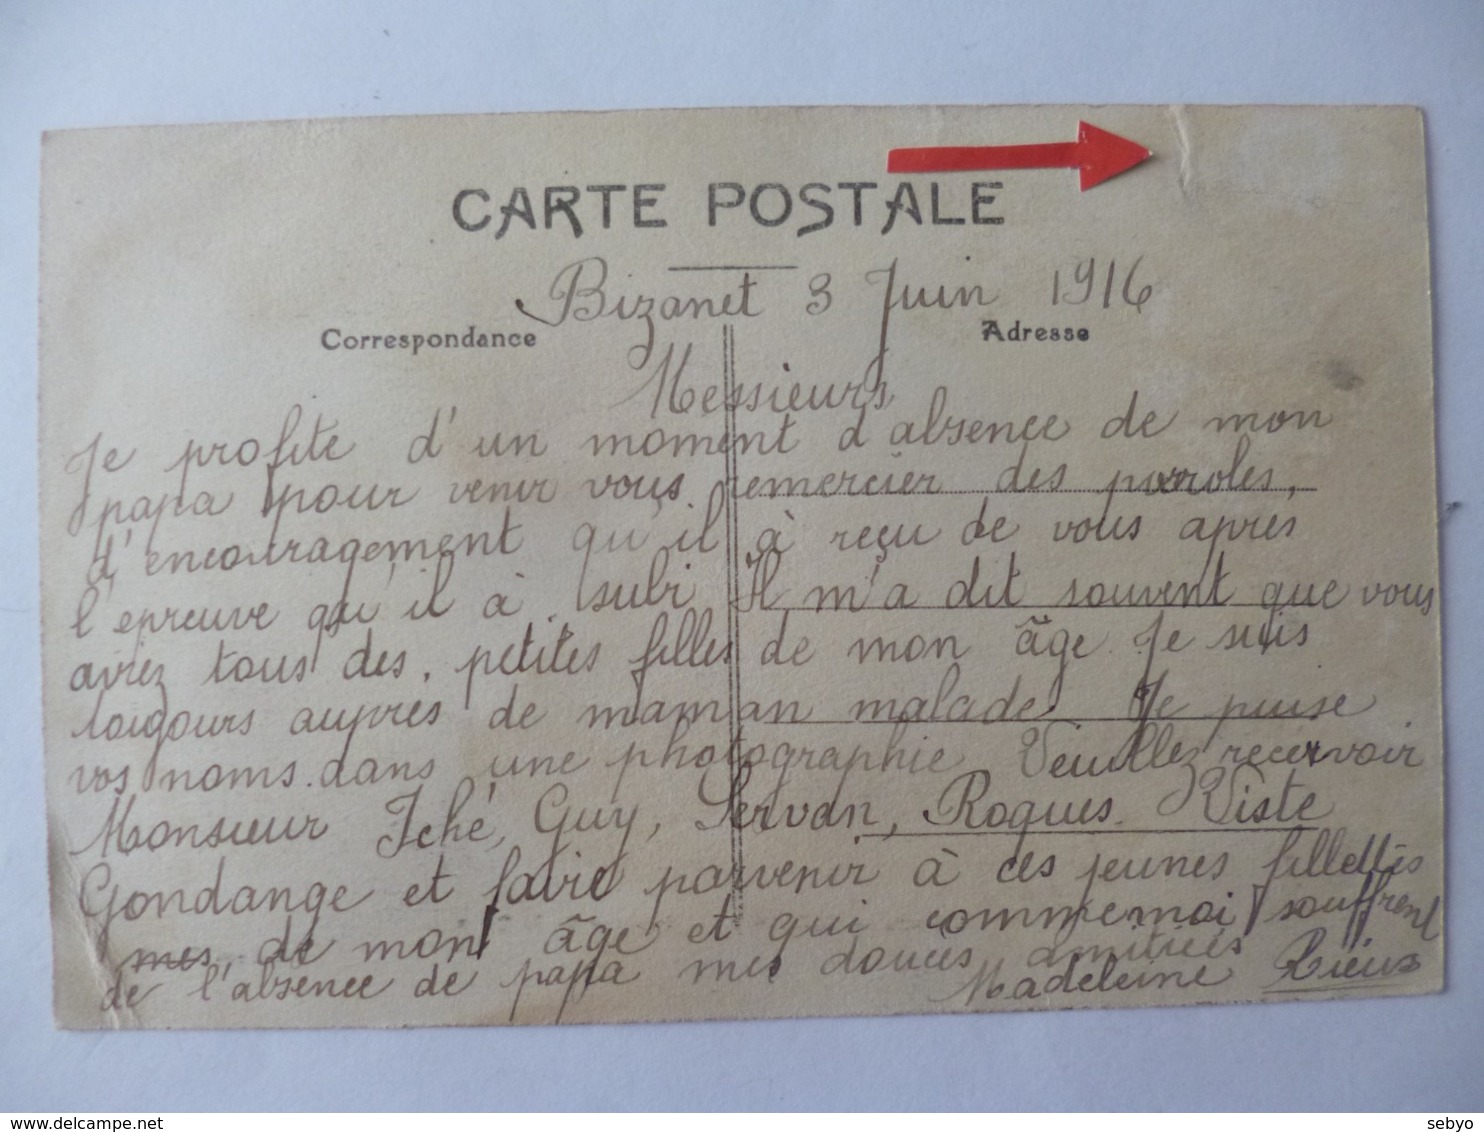 CARTE POSTALE
Bizanet 3 Juin 1916
Correspondance
Adresse
Messieurs
Je profite d'un moment d'absence de mon
papa pour venir vous remercier des paroles,
d'encouragement qu'il à reçu de vous apres
l'epreuve qu'il à subi Il m'a dit souvent que vous
aviez tous des, petites filles de mon âge. Je suis
toujours auprès de maman malade Je puise
vos noms dans une photographie Veuillez recervoir
Monsieur Iché, Guy, Servan, Roques. Viste
Gondange et faire parvenir à ces jeunes fillettes
mes de mon âge et qui comme moi souffrent
de l'absence de papa mes douces amitiées
Madeleine Rieux
delcampe.net
sebyo